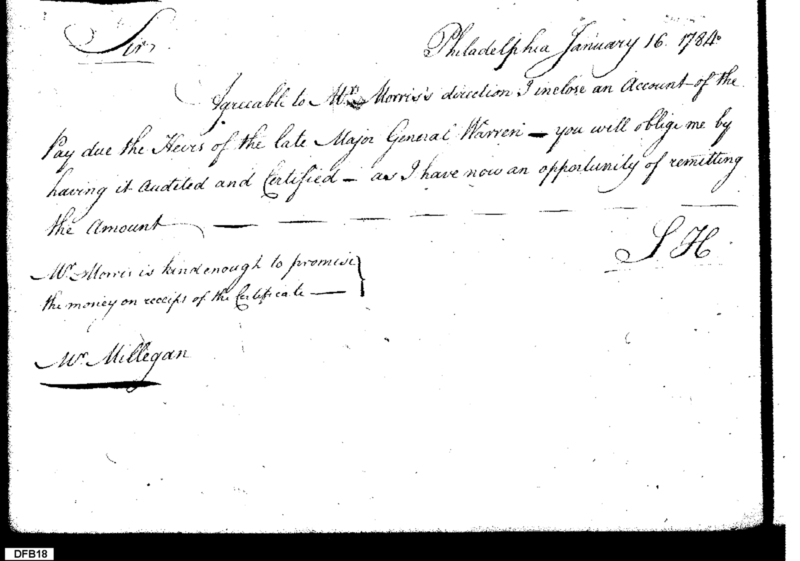 Sir
Philadelphia January 16. 1784
Agreeable to Mr. Morris's direction I inclose an Account of the
Pay due the Heirs of the late Major General Warren — you will oblige me by
having it Audited and Certified — as I have now an opportunity of remitting
the Amount — — — — — — — —
S H.
Mr. Morris is kind enough to promise
the money on receipt of the Certificate —
Mr. Millegan
DFB18